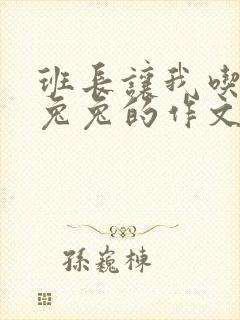 班长讓我喫
兔兔的作文
孫巍棟